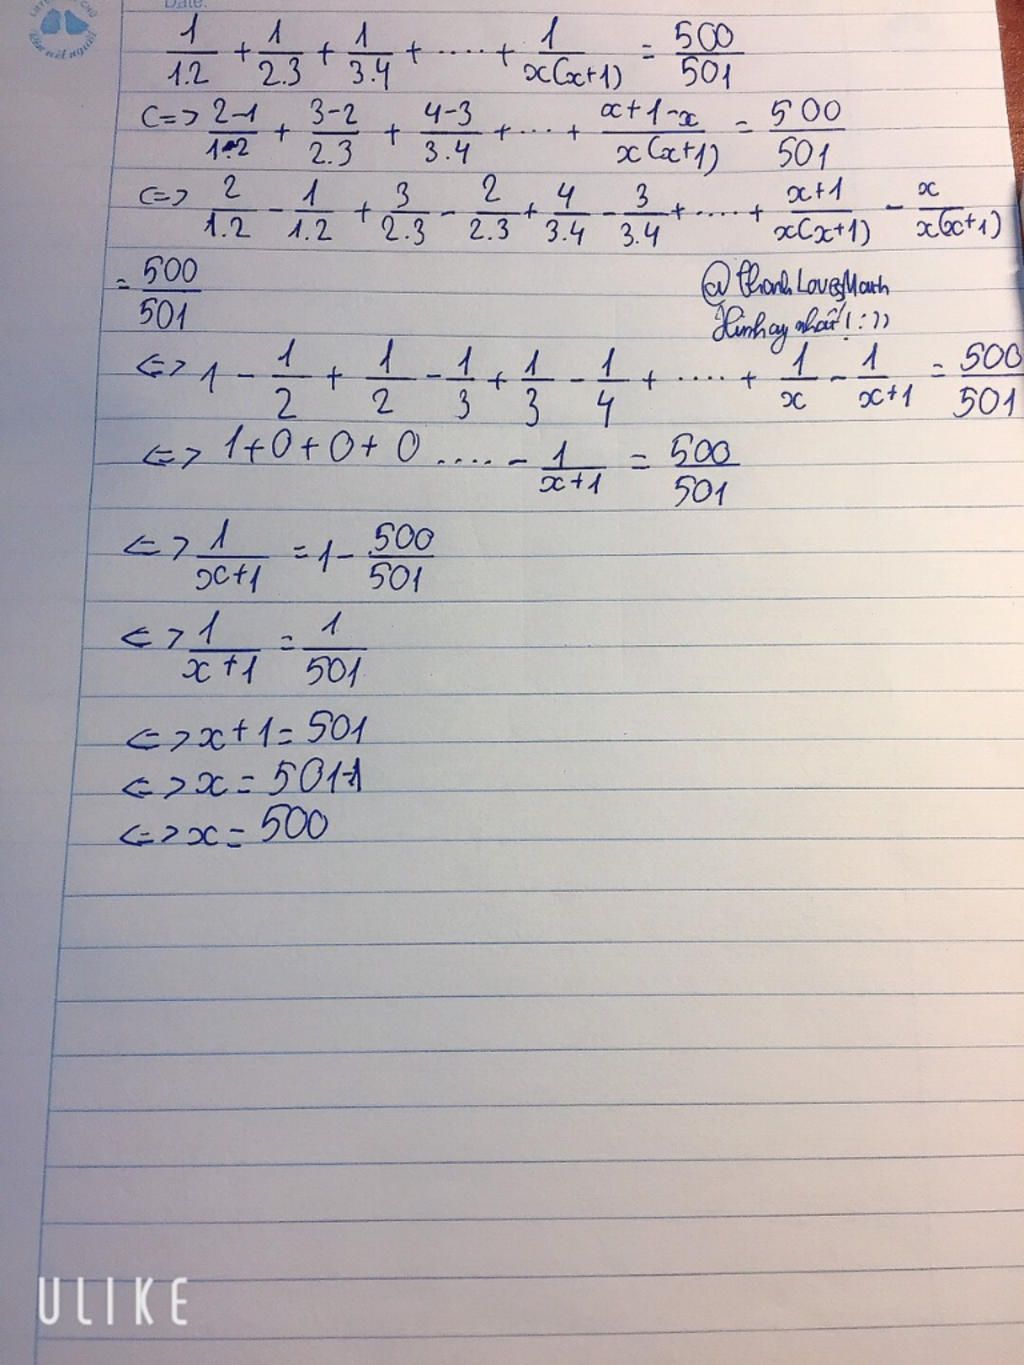 Date:
1/1.2 + 1/2.3 + 1/3.4 + ..... + 1/x(x+1) = 500/501
<=> 2-1/1.2 + 3-2/2.3 + 4-3/3.4 + ... + x+1-x/x(x+1) = 500/501
<=> 2/1.2 - 1/1.2 + 3/2.3 - 2/2.3 + 4/3.4 - 3/3.4 + ..... + x+1/x(x+1) - x/x(x+1)
= 500/501
@ThanhLovesMath
nhất! :))
<=> 1 - 1/2 + 1/2 - 1/3 + 1/3 - 1/4 + ..... + 1/x - 1/x+1 = 500/501
<=> 1+0+0+0 .... - 1/x+1 = 500/501
<=> 1/x+1 = 1 - 500/501
<=> 1/x+1 = 1/501
<=> x+1 = 501
<=> x = 501-1
<=> x = 500
ULIKE